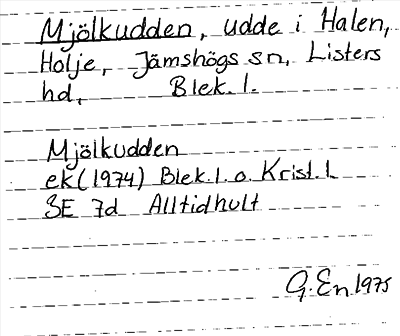 Mjölkudden, udde i Halen,
Holje, Jämshögs sn, Listers
hd, Blek. l.
Mjölkudden
ek (1974) Blek. l. o. Krist. l.
3E 7d Alltidhult
G. En 1975